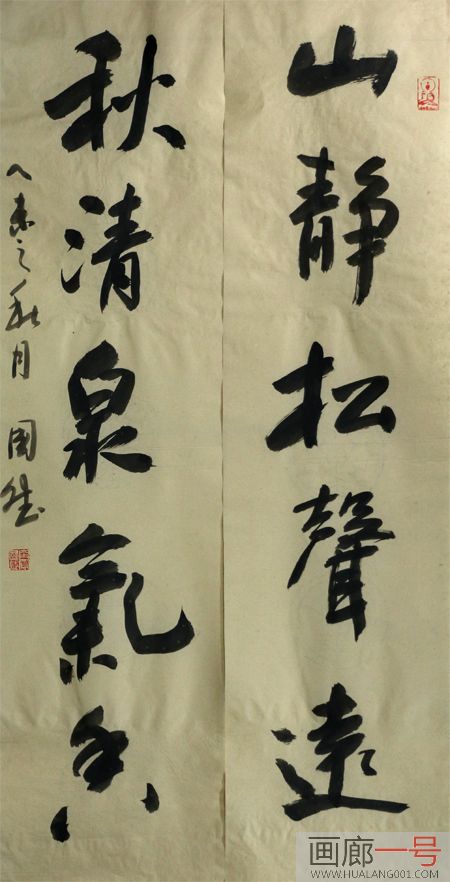 山靜松聲遠
秋清泉氣香
乙未之秋月 国
画廊一号
WWW.HUALANG001.COM